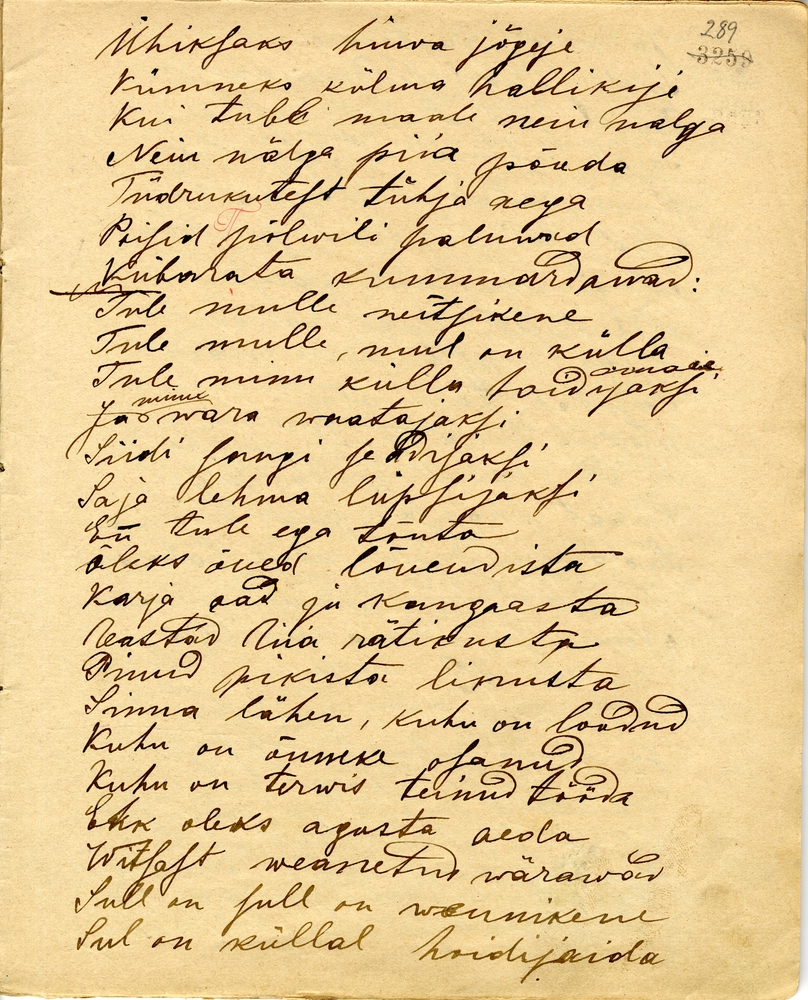 289
3259
Ühiksaks hiwa jõgeje
Kümneks külma hallikije
Kui tuleb maale neiu nalga
Neiu nälga piia põuda
Tüdrukutest tühja aega
Poisid põlwili paluwad
Kübarata kummardawad:
Tule mulle neitsikene
Tule mulle, mul on külla
Tule minu külla hoidijaksi
Ja minu wara waatajaksi
Siidi sängi seadijaksi
Saja lehma lüpsijäksi
En tule ega tõuta
õleks õued lõuendista
Karja aad ja kangaasta
Uastad liia rätikusta
Pinud pikista linusta
Sinna lähen, kuhu on loodud
Kuhu on õnneke osanud
Kuhu on terwis teinud tööda
Ehk oleks agusta aeda
Witsast weanetud wärawad
Sull on sull on wennikene
Sul on küllal hoidijaida